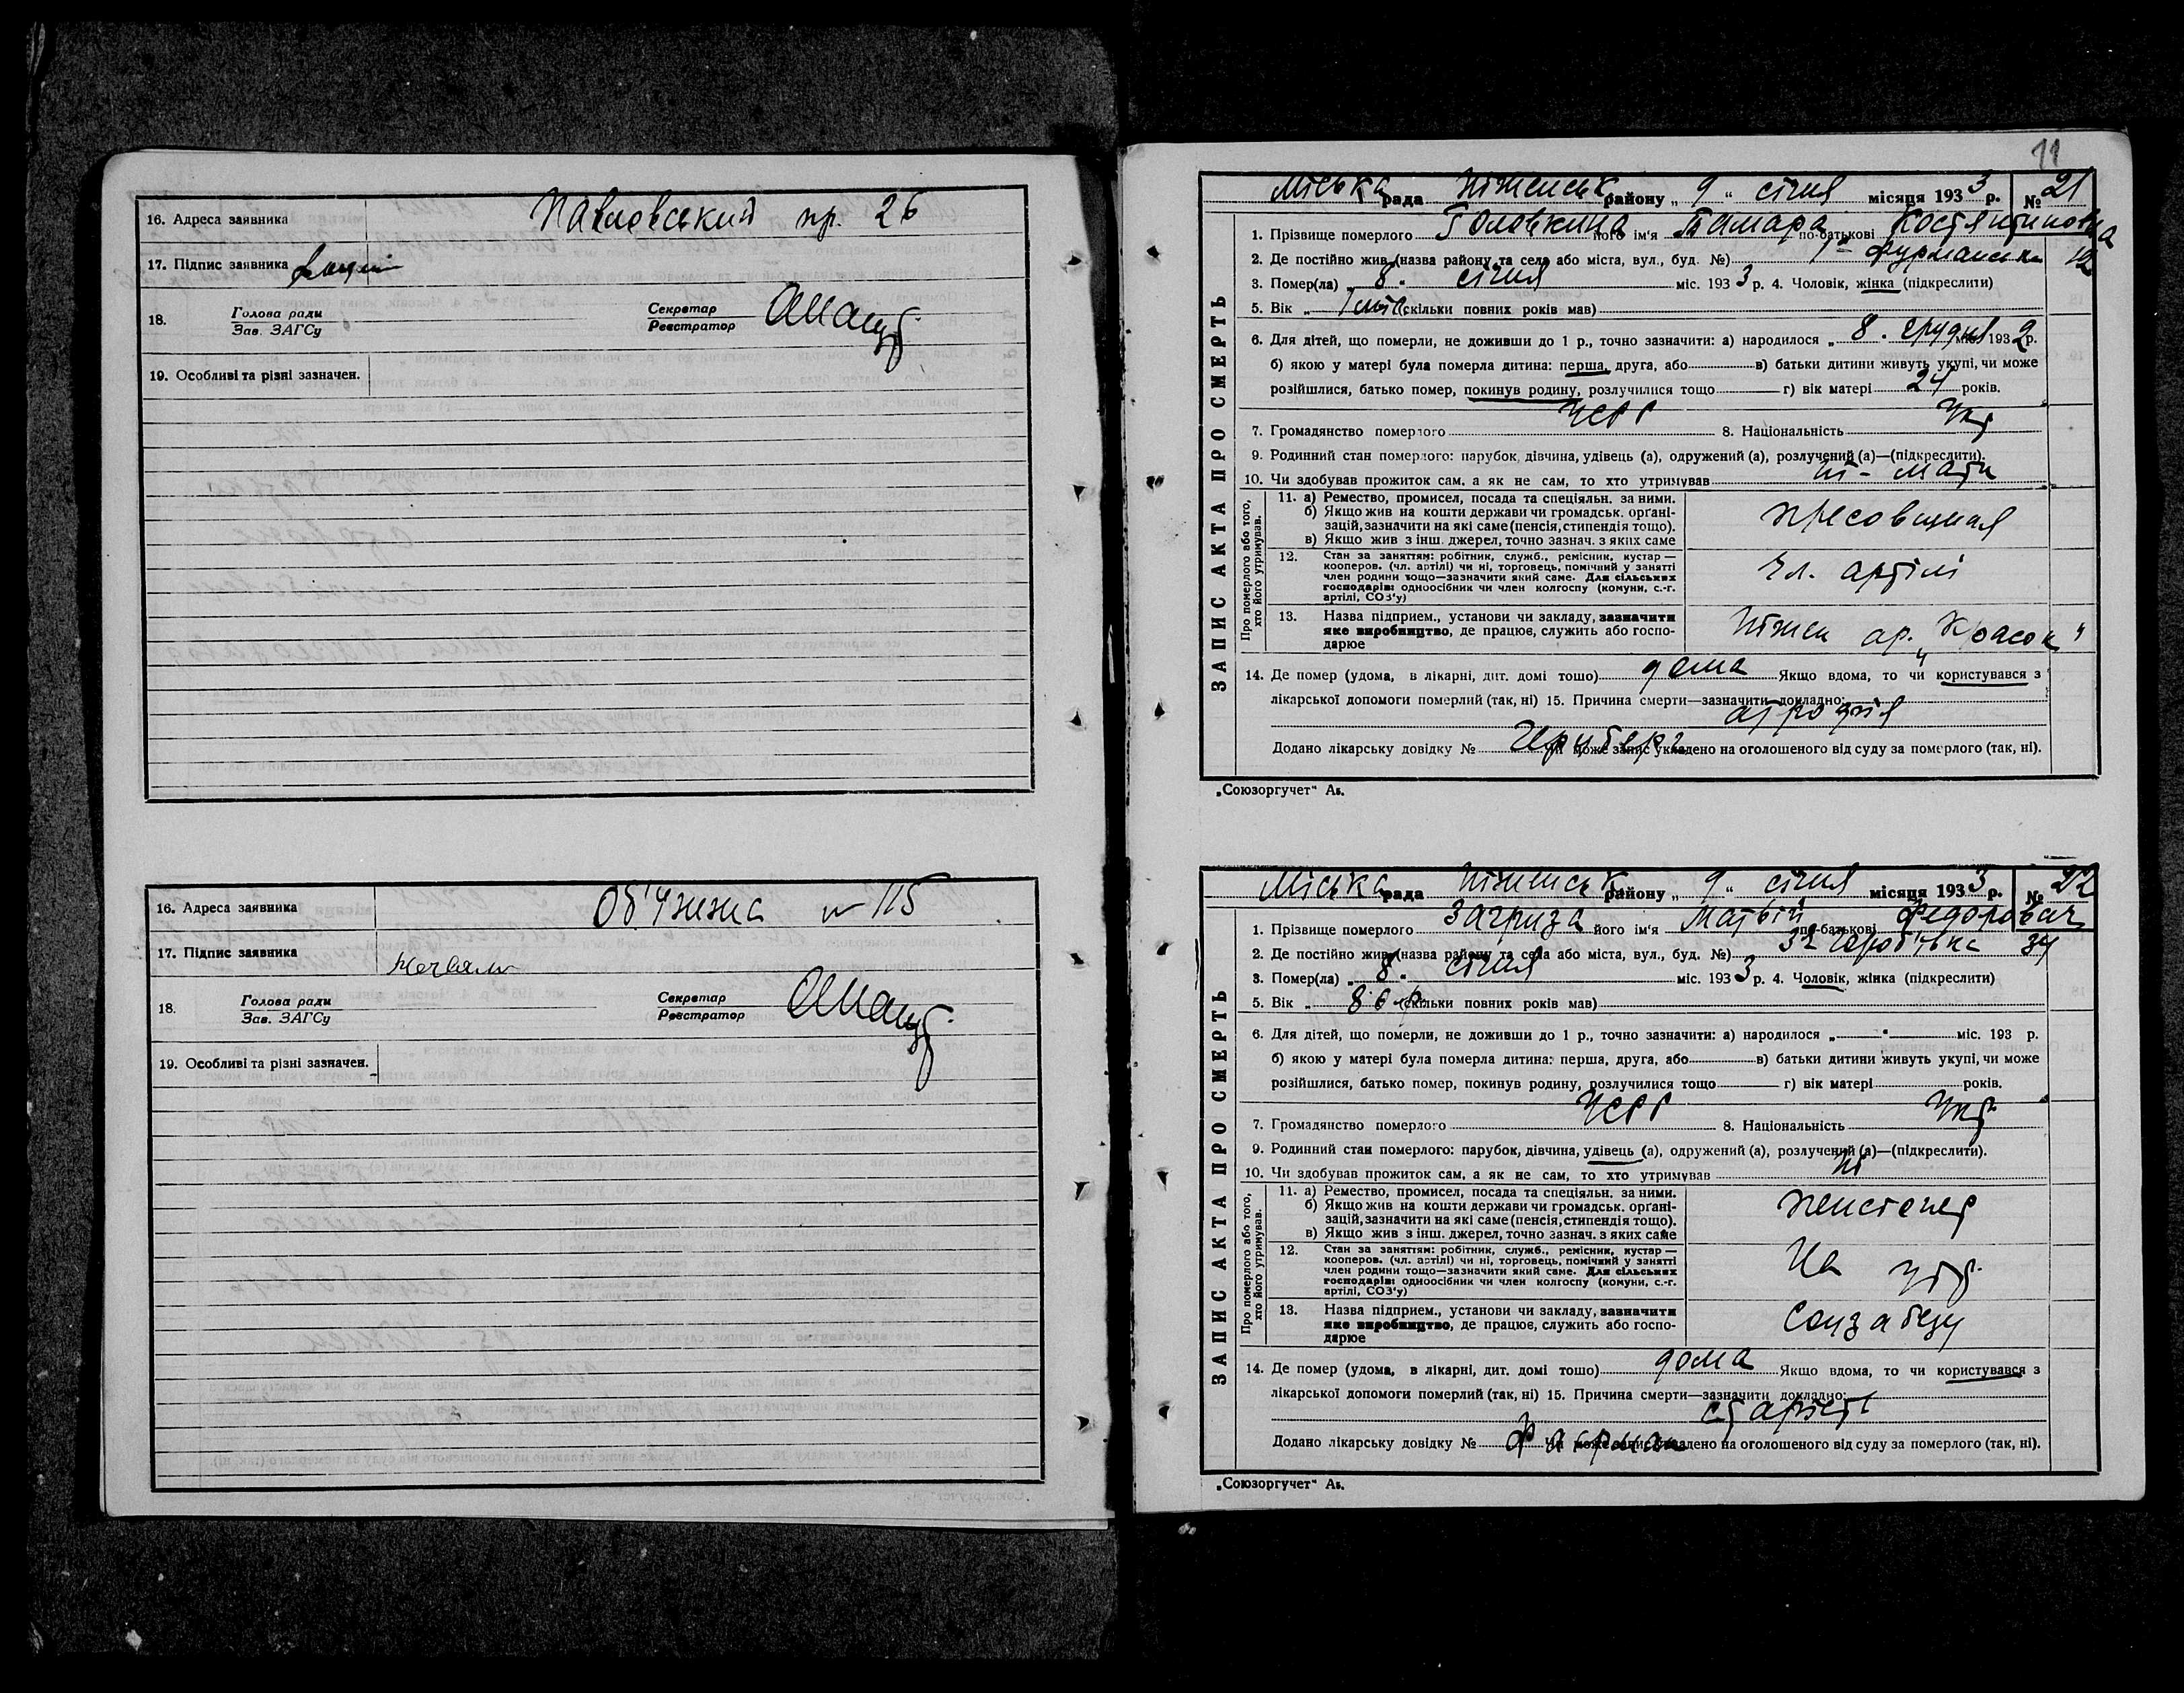 16. Адреса заявника Павловський пр. 26
17. Підпис заявника
18. Голова ради
Зав. ЗАГСу
Секретар
Реєстратор
19. Особливі та різні зазначен.
16. Адреса заявника Об'їжжа № 115
17. Підпис заявника
18. Голова ради
Зав. ЗАГСу
Секретар
Реєстратор
19. Особливі та різні зазначен.
11
ЗАПИС АКТА ПРО СМЕРТЬ
Міська рада Ніженськ. району „ 9 “ січня місяця 1933 р. № 21
1. Прізвище померлого Головкина його ім'я Тамара по-батькові Костянтиновна
2. Де постійно жив (назва району та села або міста, вул., буд. №) 1а Фурманська 12
3. Помер(ла) „ 8 “ січня міс. 1933 р. 4. Чоловік, жінка (підкреслити)
5. Вік „ 1 міс (скільки повних років мав)
6. Для дітей, що померли, не доживши до 1 р., точно зазначити: а) народилося „ 8 “ грудня міс. 1932 р.
б) якою у матері була померла дитина: перша, друга, або в) батьки дитини живуть укупі, чи може
розійшлися, батько помер, покинув родину, розлучилися тощо г) вік матері 24 років.
7. Громадянство померлого УСРР 8. Національність Укр
9. Родинний стан померлого: парубок, дівчина, удівець (а), одружений (а), розлучений (а)—(підкреслити).
10. Чи здобував прожиток сам, а як не сам, то хто утримував ні - мати
Про померлого або того, хто його утримував.
11. а) Ремество, промисел, посада та спеціяльн. за ними.
б) Якщо жив на кошти держави чи громадськ. орґані-
зацій, зазначити на які саме (пенсія, стипендія тощо).
в) Якщо жив з інш. джерел, точно зазнач. з яких саме
пресовщиця
12. Стан за заняттям: робітник, служб., ремісник, кустар —
кооперов. (чл. артілі) чи ні, торговець, помічний у занятті
член родини тощо—зазначити який саме. Для сільських
господарів: одноосібник чи член колгоспу (комуни, с.-г.
артілі, СОЗ'у)
Чл. артілі
13. Назва підприєм., установи чи закладу, зазначити
яке виробництво, де працює, служить або госпо-
дарює
Ніжен ар. „Красок“
14. Де помер (удома, в лікарні, дит. домі тощо) дома Якщо вдома, то чи користувався з
лікарської допомоги померлий (так, ні) 15. Причина смерти—зазначити докладно:
атрофія
Додано лікарську довідку № Чи може запис укладено на оголошеного від суду за померлого (так, ні).
„Союзоргучет“ Аз.
ЗАПИС АКТА ПРО СМЕРТЬ
Міська рада Ніженськ. району „ 9 “ січня місяця 1933 р. № 22
1. Прізвище померлого Загриза його ім'я Матвій по-батькові Федорович
2. Де постійно жив (назва району та села або міста, вул., буд. №) 34
3. Помер(ла) „ 8 “ січня міс. 1933 р. 4. Чоловік, жінка (підкреслити)
5. Вік „ 86 р. (скільки повних років мав)
6. Для дітей, що померли, не доживши до 1 р., точно зазначити: а) народилося „ “ міс. 193 р.
б) якою у матері була померла дитина: перша, друга, або в) батьки дитини живуть укупі, чи може
розійшлися, батько помер, покинув родину, розлучилися тощо г) вік матері років.
7. Громадянство померлого УСРР 8. Національність Укр.
9. Родинний стан померлого: парубок, дівчина, удівець (а), одружений (а), розлучений (а)—(підкреслити).
10. Чи здобував прожиток сам, а як не сам, то хто утримував ні
Про померлого або того, хто його утримував.
11. а) Ремество, промисел, посада та спеціяльн. за ними.
б) Якщо жив на кошти держави чи громадськ. орґані-
зацій, зазначити на які саме (пенсія, стипендія тощо).
в) Якщо жив з інш. джерел, точно зазнач. з яких саме
пенсіонер
12. Стан за заняттям: робітник, служб., ремісник, кустар —
кооперов. (чл. артілі) чи ні, торговець, помічний у занятті
член родини тощо—зазначити який саме. Для сільських
господарів: одноосібник чи член колгоспу (комуни, с.-г.
артілі, СОЗ'у)
На утр.
13. Назва підприєм., установи чи закладу, зазначити
яке виробництво, де працює, служить або госпо-
дарює
Соцзабезу
14. Де помер (удома, в лікарні, дит. домі тощо) дома Якщо вдома, то чи користувався з
лікарської допомоги померлий (так, ні) 15. Причина смерти—зазначити докладно:
старість
Додано лікарську довідку № Чи може запис укладено на оголошеного від суду за померлого (так, ні).
„Союзоргучет“ Аз.